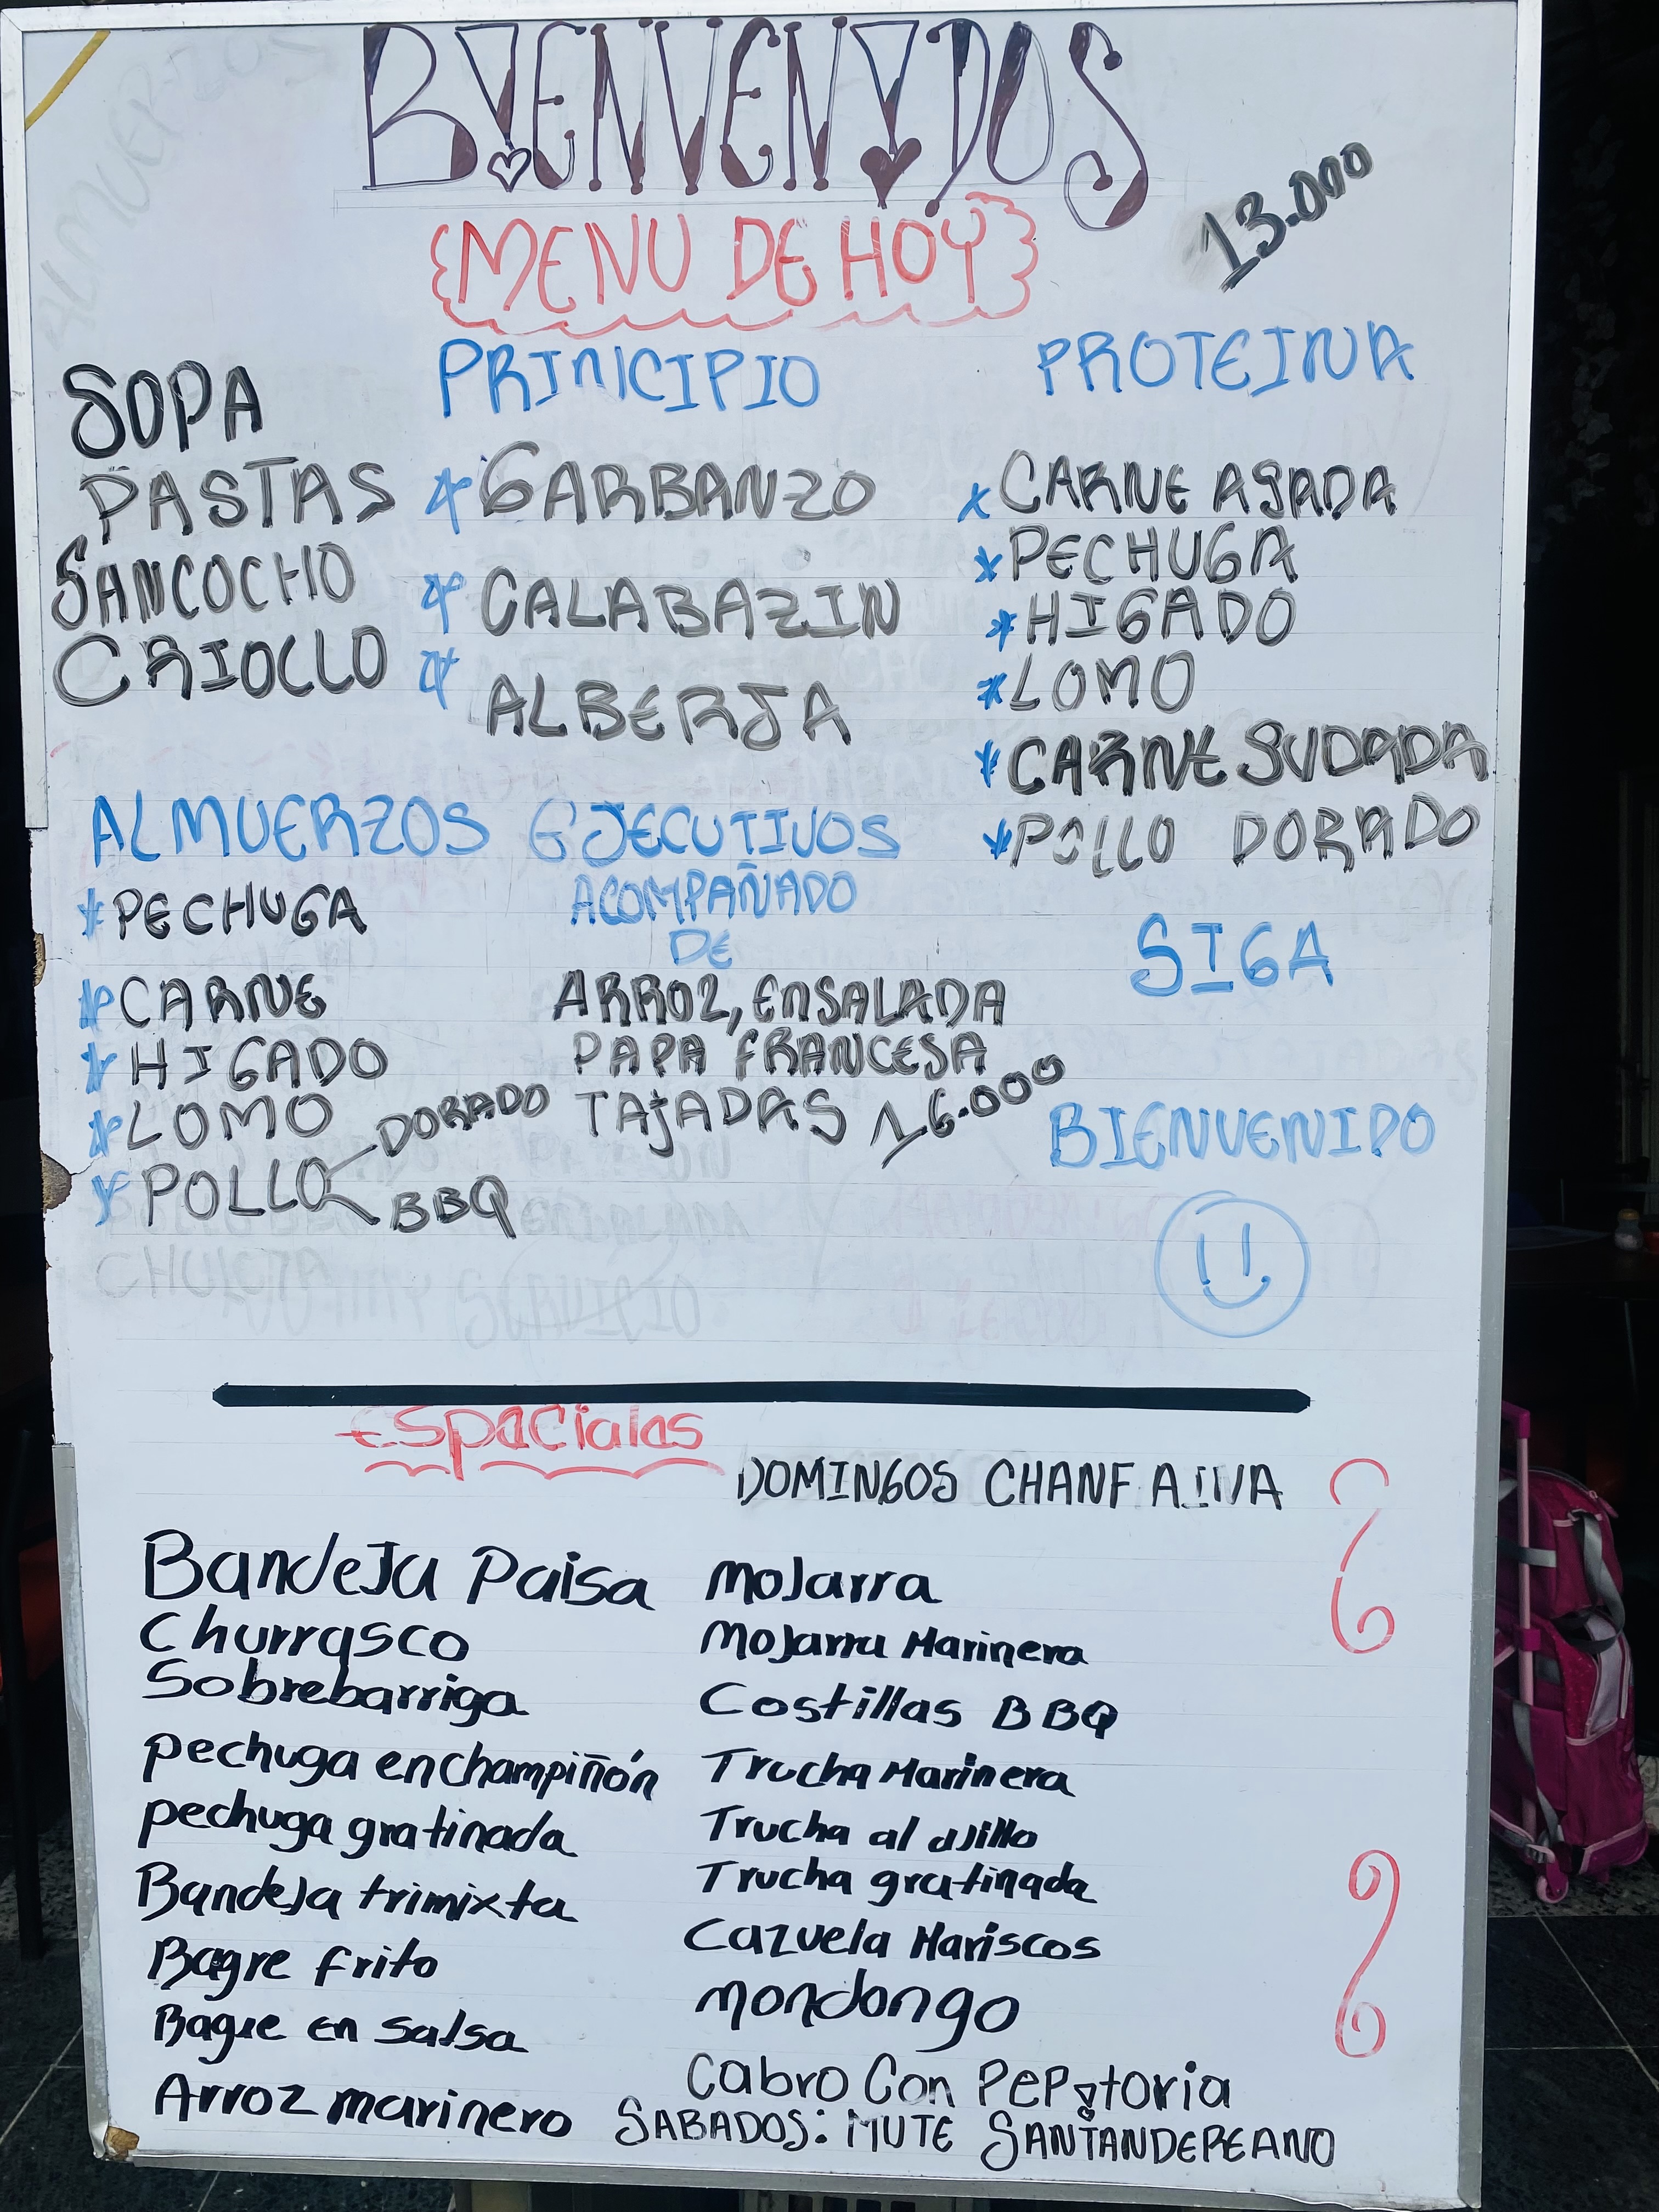 BIENVENIDOS
13.000
MENU DE HOY
SOPA
PASTAS
SANCOCHO
CRIOLLO
PRINICIPIO
GARBANZO
CALABAZIN
ALBERJA
PROTEINA
CARNE ASADA
PECHUGA
HIGADO
LOMO
CARNE SUDADA
POLLO DORADO
ALMUERZOS EJECUTIVOS
PECHUGA
CARNE
HIGADO
LOMO
POLLO DORADO
BBQ
ACOMPAÑADO
DE
ARROZ, ENSALADA
PAPA FRANCESA
TAJADAS 16.000
SIGA
BIENVENIDO
Especiales
DOMINGOS CHANFAINA
Bandeja Paisa
Churrasco
Sobrebarriga
pechuga en champiñón
pechuga gratinada
Bandeja trimixta
Bagre frito
Bagre en salsa
Arroz marinero
Mojarra
Mojarra Marinera
Costillas BBQ
Trucha Marinera
Trucha al ajillo
Trucha gratinada
Cazuela Mariscos
mondongo
Cabro Con Pepitoria
SABADOS: MUTE SANTANDEREANO